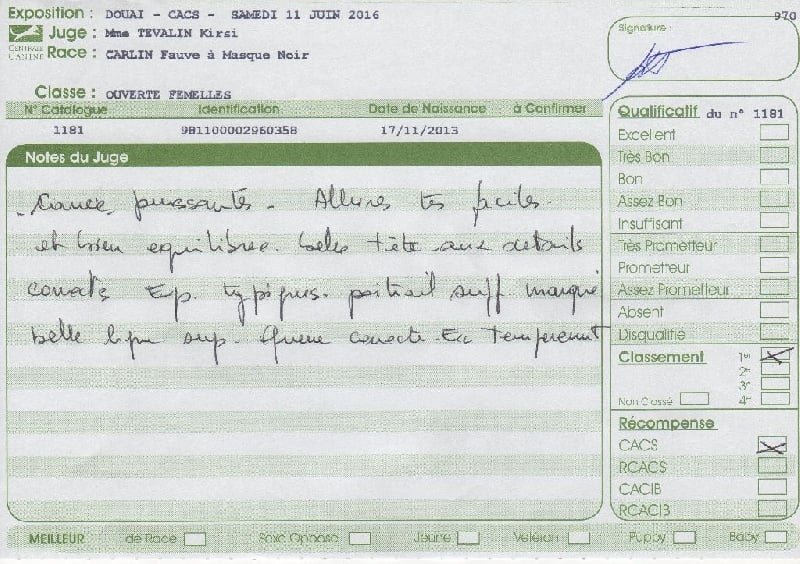 Exposition : DOUAI - CACS - SAMEDI 11 JUIN 2016
970
Juge : Mme TEVALIN Kirsi
CENTRALE CANINE
Race : CARLIN Fauve à Masque Noir
Signature :
Classe : OUVERTE FEMELLES
N° Catalogue Identification Date de Naissance à Confirmer
1181 981100002960358 17/11/2013
Notes du Juge
puissante. Allures tès faciles.
et bien equilibree. belle tête aux details
corrects Exp. typiques. poitrail suff. marqué
belle ligne sup. Queue correcte. Ex Temperemnt
Qualificatif du n° 1181
Excellent
Très Bon
Bon
Assez Bon
Insuffisant
Très Prometteur
Prometteur
Assez Prometteur
Absent
Disqualifié
Classement 1er
2e
3e
Non Classé 4e
Récompense
CACS
RCACS
CACIB
RCACIB
MEILLEUR de Race Sexe Opposé Jeune Vétéran Puppy Baby